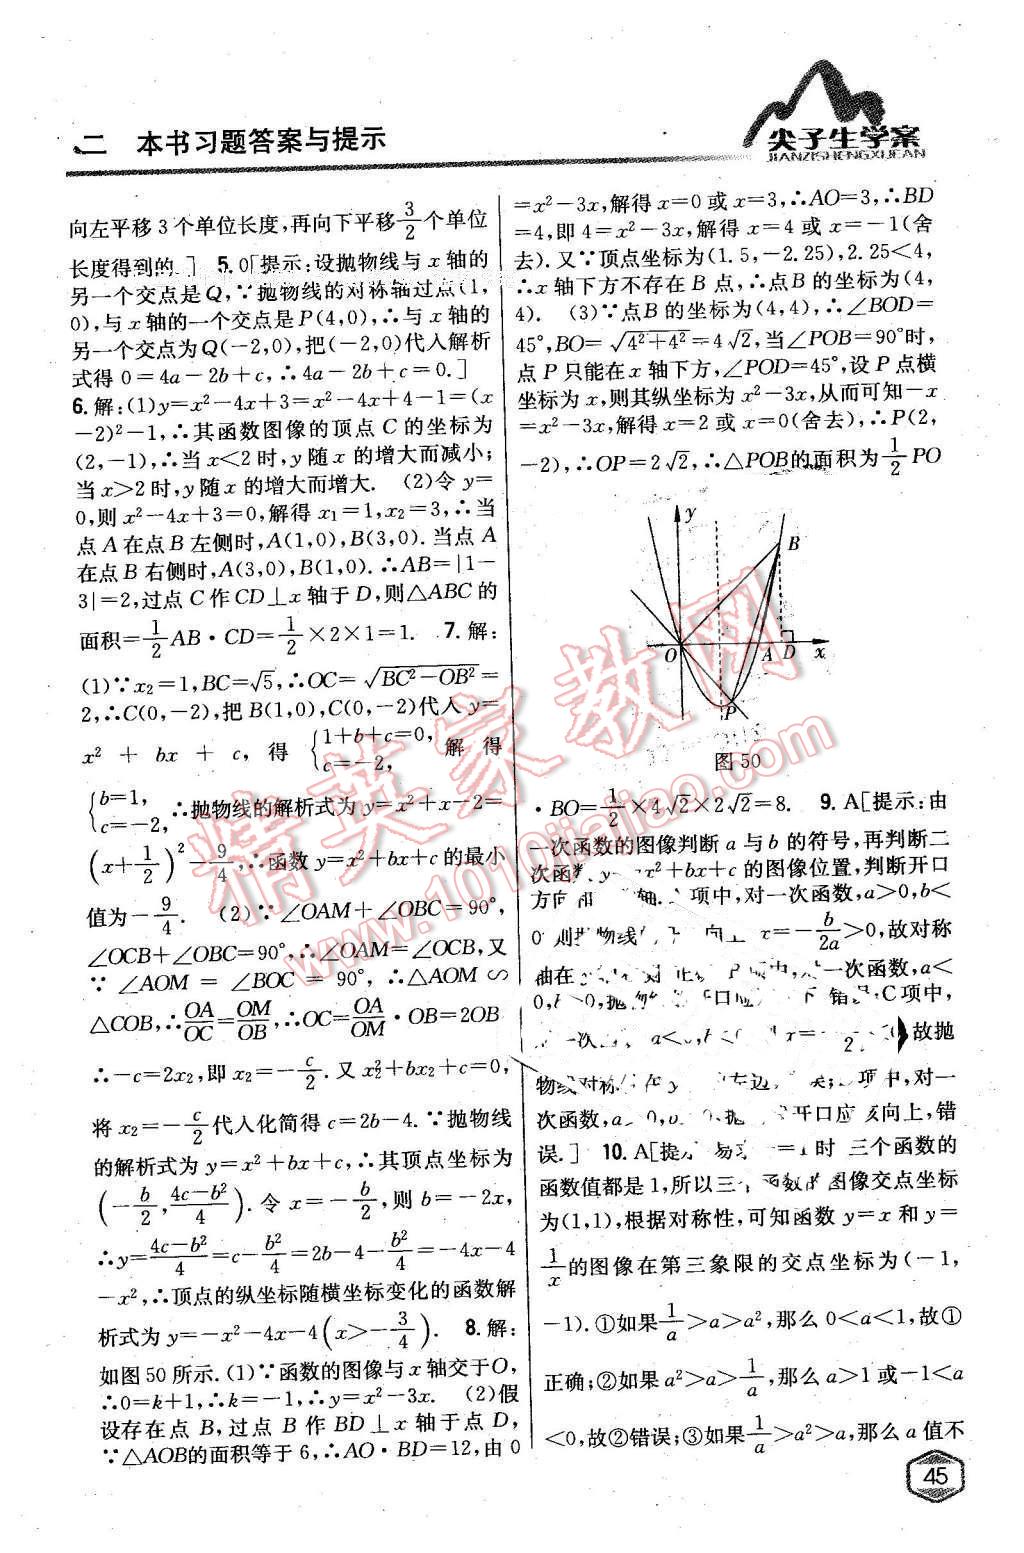 二 本书习题答案与提示
尖子生学案
JIANZISHENGXUEAN
向左平移3个单位长度,再向下平移3/2个单位
长度得到的.] 5.0[提示:设抛物线与x轴的
另一个交点是Q,∵抛物线的对称轴过点(1,
0),与x轴的一个交点是P(4,0),∴与x轴的
另一个交点为Q(-2,0),把(-2,0)代入解析
式得0=4a-2b+c,∴4a-2b+c=0.]
6.解:(1)y=x²-4x+3=x²-4x+4-1=(x
-2)²-1,∴其函数图像的顶点C的坐标为
(2,-1),∴当x<2时,y随x的增大而减小;
当x>2时,y随x的增大而增大. (2)令y=
0,则x²-4x+3=0,解得x₁=1,x₂=3,∴当
点A在点B左侧时,A(1,0),B(3,0).当点A
在点B右侧时,A(3,0),B(1,0).∴AB=|1-
3|=2,过点C作CD⊥x轴于D,则△ABC的
面积=1/2 AB·CD=1/2×2×1=1. 7.解:
(1)∵x₂=1,BC=√5,∴OC=√(BC²-OB²)=
2,∴C(0,-2),把B(1,0),C(0,-2)代入y=
x² + bx + c, 得 {1+b+c=0, c=-2, 解得
{b=1, c=-2, ∴抛物线的解析式为y=x²+x-2=
(x+1/2)²-9/4,∴函数y=x²+bx+c的最小
值为-9/4. (2)∵∠OAM+∠OBC=90°,
∠OCB+∠OBC=90°,∴∠OAM=∠OCB,又
∵ ∠AOM = ∠BOC = 90°, ∴△AOM ∽
△COB,∴OA/OC=OM/OB,∴OC=OA/OM·OB=2OB
∴-c=2x₂,即x₂=-c/2.又x₂²+bx₂+c=0,
将x₂=-c/2代入化简得c=2b-4.∵抛物线
的解析式为y=x²+bx+c,∴其顶点坐标为
(-b/2,(4c-b²)/4).令x=-b/2,则b=-2x,
∴y=(4c-b²)/4=c-b²/4=2b-4-b²/4=-4x-4
-x²,∴顶点的纵坐标随横坐标变化的函数解
析式为y=-x²-4x-4(x>-3/4). 8.解:
如图50所示.(1)∵函数的图像与x轴交于O,
∴0=k+1,∴k=-1,∴y=x²-3x. (2)假
设存在点B,过点B作BD⊥x轴于点D,
∵△AOB的面积等于6,∴AO·BD=12,由0
=x²-3x,解得x=0或x=3,∴AO=3,∴BD
=4,即4=x²-3x,解得x=4或x=-1(舍
去).又∵顶点坐标为(1.5,-2.25),2.25<4,
∴x轴下方不存在B点,∴点B的坐标为(4,
4). (3)∵点B的坐标为(4,4),∴∠BOD=
45°,BO=√(4²+4²)=4√2,当∠POB=90°时,
点P只能在x轴下方,∠POD=45°,设P点横
坐标为x,则其纵坐标为x²-3x,从而可知-x
=x²-3x,解得x=2或x=0(舍去),∴P(2,
-2),∴OP=2√2,∴△POB的面积为1/2 PO
y
B
O
A D x
P
图50
·BO=1/2×4√2×2√2=8. 9.A[提示:由
一次函数的图像判断a与b的符号,再判断二
次函 y= x²+bx+c的图像位置,判断开口
方向和 轴. 项中,对一次函数,a>0,b<
0 则 物线 向上 x=-b/2a>0,故对称
轴在 中, 一次函数,a<
0,b>0,抛 开口应 下 错 ;C项中,
一次 a<0, x=- 故抛
物线对称 在y 左边, 项中,对一
次函数,a 0,b 0,抛 开口应该向上,错
误.] 10.A[提 易 =1时 三个函数的
函数值都是1,所以三个函数的图像交点坐标
为(1,1),根据对称性,可知函数y=x和y=
1/x的图像在第三象限的交点坐标为(-1,
-1).①如果1/a>a>a²,那么0<a<1,故①
正确;②如果a²>a>1/a,那么a>1或-1<a
<0,故②错误;③如果1/a>a²>a,那么a值不
45
精英家教网
www.1010jiajiao.com